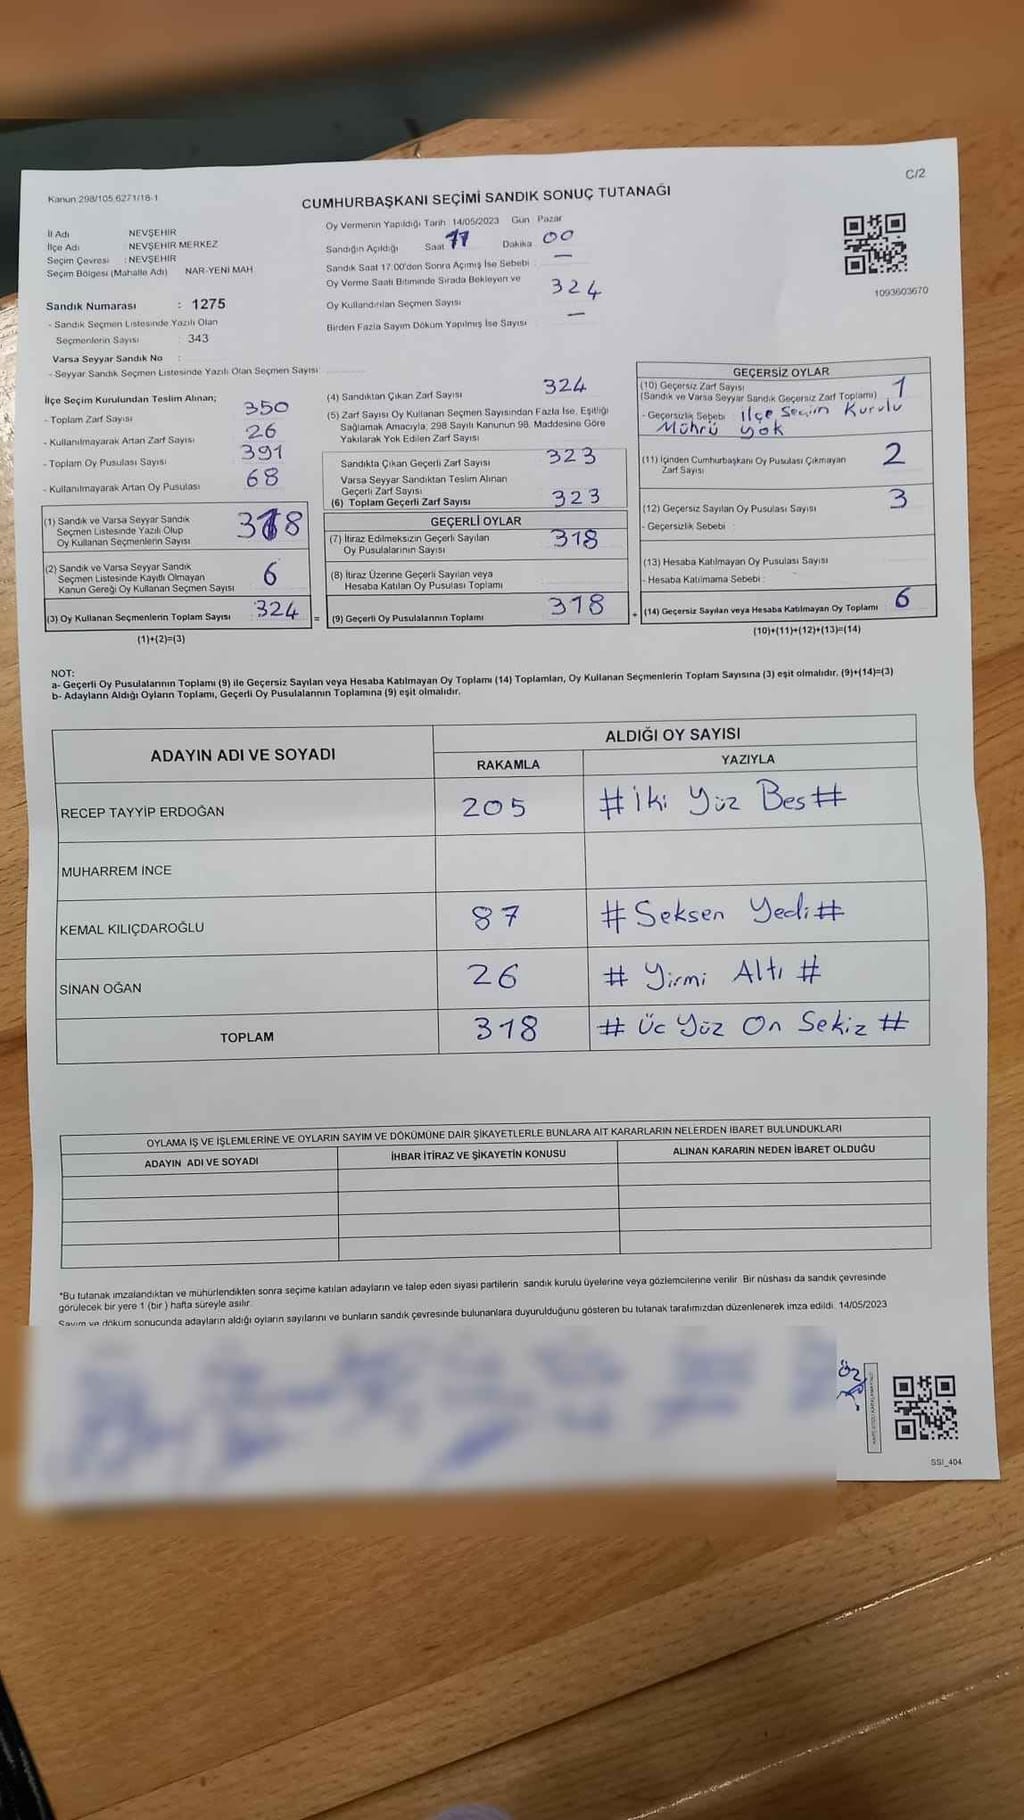 Kanun 298/105,6271/18-1
C/2
CUMHURBAŞKANI SEÇİMİ SANDIK SONUÇ TUTANAĞI
İl Adı NEVŞEHİR
İlçe Adı NEVŞEHİR MERKEZ
Seçim Çevresi : NEVŞEHİR
Seçim Bölgesi (Mahalle Adı) NAR-YENİ MAH
Sandık Numarası : 1275
- Sandık Seçmen Listesinde Yazılı Olan
Seçmenlerin Sayısı : 343
Varsa Seyyar Sandık No :
- Seyyar Sandık Seçmen Listesinde Yazılı Olan Seçmen Sayısı:
Oy Vermenin Yapıldığı Tarih: 14/05/2023 Gün: Pazar
Sandığın Açıldığı Saat 17 Dakika 00
Sandık Saat 17:00'den Sonra Açımış İse Sebebi : —
Oy Verme Saati Bitiminde Sırada Bekleyen ve
Oy Kullandırılan Seçmen Sayısı 324
Birden Fazla Sayım Döküm Yapılmış İse Sayısı —
1093603670
İlçe Seçim Kurulundan Teslim Alınan;
- Toplam Zarf Sayısı 350
- Kullanılmayarak Artan Zarf Sayısı 26
- Toplam Oy Pusulası Sayısı 391
- Kullanılmayarak Artan Oy Pusulası 68
(1) Sandık ve Varsa Seyyar Sandık
Seçmen Listesinde Yazılı Olup
Oy Kullanan Seçmenlerin Sayısı 318
(2) Sandık ve Varsa Seyyar Sandık
Seçmen Listesinde Kayıtlı Olmayan
Kanun Gereği Oy Kullanan Seçmen Sayısı 6
(3) Oy Kullanan Seçmenlerin Toplam Sayısı 324
(1)+(2)=(3)
=
(4) Sandıktan Çıkan Zarf Sayısı 324
(5) Zarf Sayısı Oy Kullanan Seçmen Sayısından Fazla İse, Eşitliği
Sağlamak Amacıyla; 298 Sayılı Kanunun 98. Maddesine Göre
Yakılarak Yok Edilen Zarf Sayısı
Sandıkta Çıkan Geçerli Zarf Sayısı 323
Varsa Seyyar Sandıktan Teslim Alınan
Geçerli Zarf Sayısı
(6) Toplam Geçerli Zarf Sayısı 323
GEÇERLİ OYLAR
(7) İtiraz Edilmeksizin Geçerli Sayılan
Oy Pusulalarının Sayısı 318
(8) İtiraz Üzerine Geçerli Sayılan veya
Hesaba Katılan Oy Pusulası Toplamı
(9) Geçerli Oy Pusulalarının Toplamı 318
+
GEÇERSİZ OYLAR
(10) Geçersiz Zarf Sayısı 1
(Sandık ve Varsa Seyyar Sandık Geçersiz Zarf Toplamı)
- Geçersizlik Sebebi : İlçe Seçim Kurulu
Mührü yok
(11) İçinden Cumhurbaşkanı Oy Pusulası Çıkmayan
Zarf Sayısı 2
(12) Geçersiz Sayılan Oy Pusulası Sayısı 3
- Geçersizlik Sebebi :
(13) Hesaba Katılmayan Oy Pusulası Sayısı
- Hesaba Katılmama Sebebi :
(14) Geçersiz Sayılan veya Hesaba Katılmayan Oy Toplamı 6
(10)+(11)+(12)+(13)=(14)
NOT:
a- Geçerli Oy Pusulalarının Toplamı (9) ile Geçersiz Sayılan veya Hesaba Katılmayan Oy Toplamı (14) Toplamları, Oy Kullanan Seçmenlerin Toplam Sayısına (3) eşit olmalıdır. (9)+(14)=(3)
b- Adayların Aldığı Oyların Toplamı, Geçerli Oy Pusulalarının Toplamına (9) eşit olmalıdır.
ADAYIN ADI VE SOYADI ALDIĞI OY SAYISI
RAKAMLA YAZIYLA
RECEP TAYYİP ERDOĞAN 205 #İki Yüz Bes#
MUHARREM İNCE
KEMAL KILIÇDAROĞLU 87 #Seksen Yedi#
SİNAN OĞAN 26 # Yirmi Altı #
TOPLAM 318 # Üc Yüz On Sekiz #
OYLAMA İŞ VE İŞLEMLERİNE VE OYLARIN SAYIM VE DÖKÜMÜNE DAİR ŞİKAYETLERLE BUNLARA AİT KARARLARIN NELERDEN İBARET BULUNDUKLARI
ADAYIN ADI VE SOYADI İHBAR İTİRAZ VE ŞİKAYETİN KONUSU ALINAN KARARIN NEDEN İBARET OLDUĞU
*Bu tutanak imzalandıktan ve mühürlendikten sonra seçime katılan adayların ve talep eden siyasi partilerin sandık kurulu üyelerine veya gözlemcilerine verilir. Bir nüshası da sandık çevresinde
görülecek bir yere 1 (bir ) hafta süreyle asılır.
Sayım ve döküm sonucunda adayların aldığı oyların sayılarını ve bunların sandık çevresinde bulunanlara duyurulduğunu gösteren bu tutanak tarafımızdan düzenlenerek imza edildi. 14/05/2023
ÖZ
SSI_404